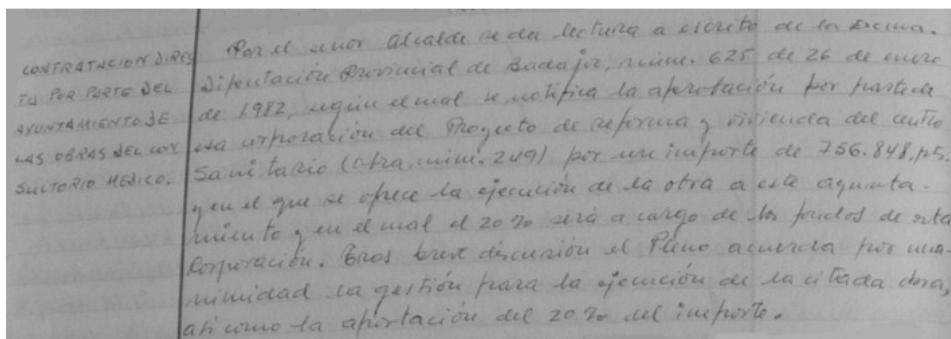 CONTRATACION DIREC
TA POR PARTE DEL
AYUNTAMIENTO DE
LAS OBRAS DEL CON
SULTORIO MEDICO.
Por el señor Alcalde se da lectura a escrito de la Excma.
Diputación Provincial de Badajoz, núm. 625 de 26 de enero
de 1982, según el cual se notifica la aprobación por parte de
esa corporación del Proyecto de reforma y vivienda del centro
Sanitario (obra núm. 249) por un importe de 756.848, pts.
y en el que se ofrece la ejecución de la otra a este ayunta-
miento y en el cual el 20% será a cargo de los fondos de esta
Corporación. Tras breve discusión el Pleno acuerda por una-
nimidad la gestión para la ejecución de la citada obra,
así como la aportación del 20% del importe.